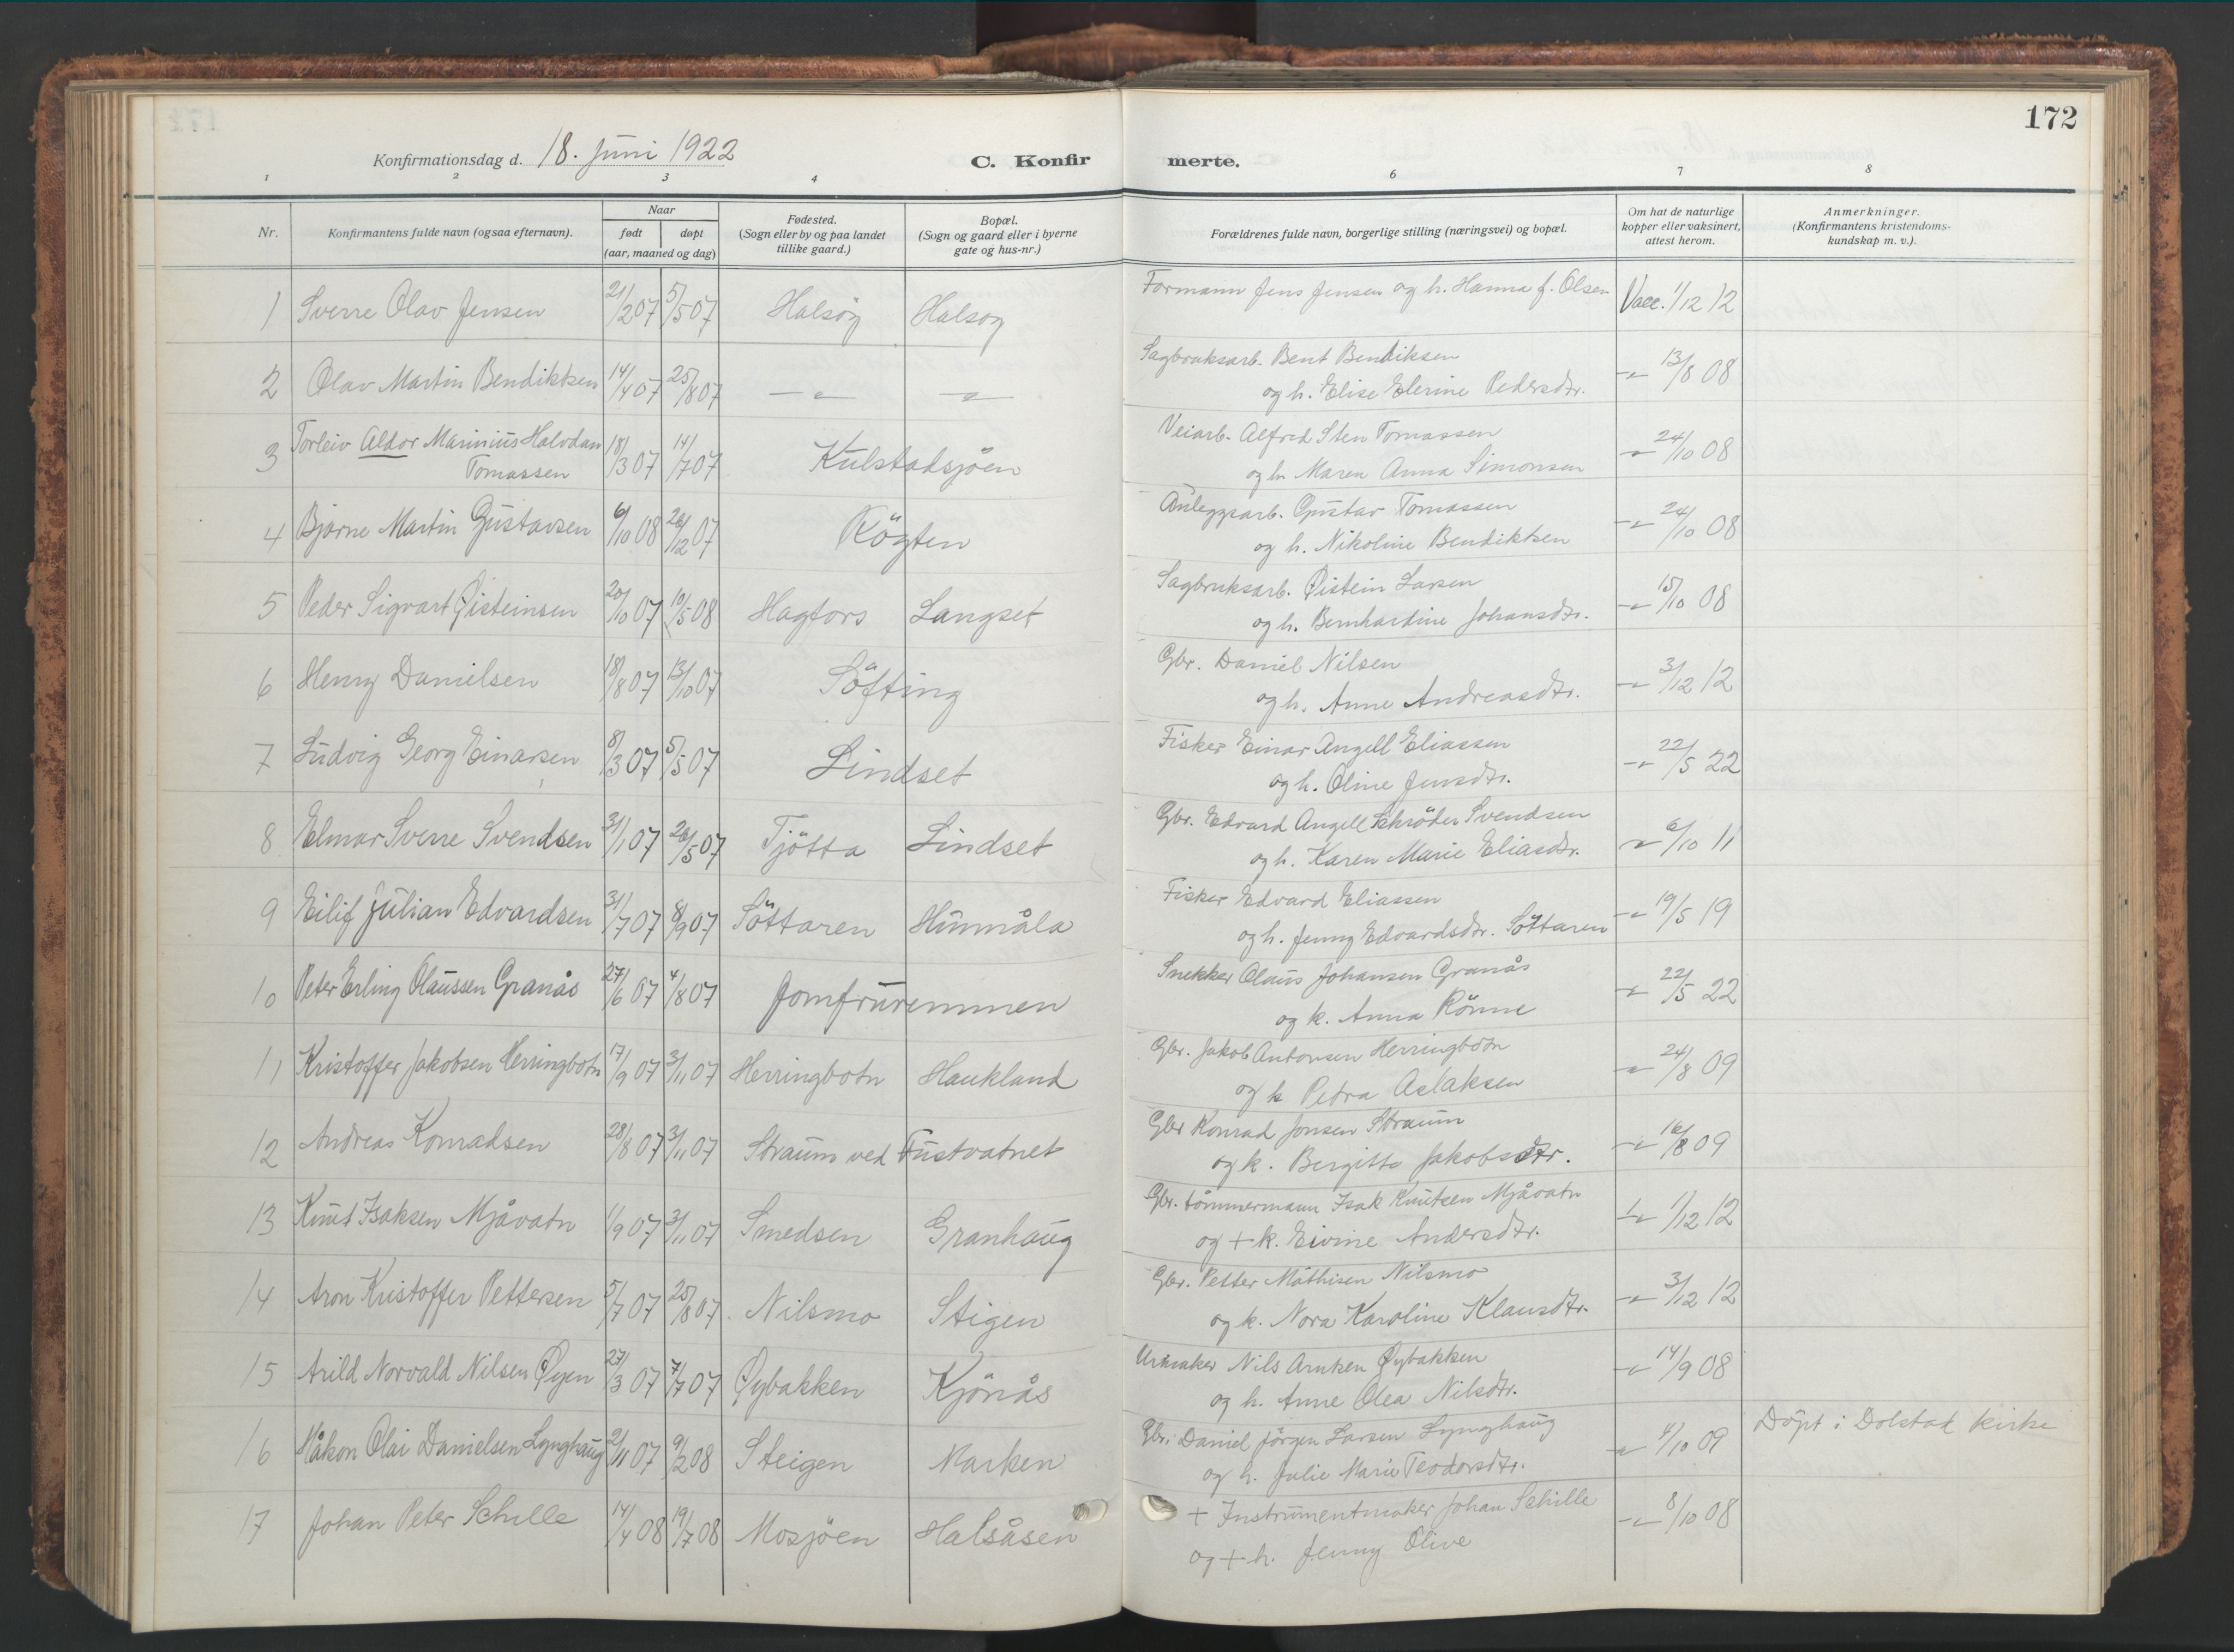 172
Konfirmationsdag d. 18. Juni 1922
C. Konfirmerte.
1 2 3 4 6 7 8
Nr.
Konfirmantens fulde navn (ogsaa efternavn).
Naar
født døpt
(aar, maaned og dag)
Fødested.
(Sogn eller by og paa landet
tillike gaard.)
Bopæl.
(Sogn og gaard eller i byerne
gate og hus-nr.)
Forældrenes fulde navn, borgerlige stilling (næringsvei) og bopæl.
Om hat de naturlige
kopper eller vaksinert,
attest herom.
Anmerkninger.
(Konfirmantens kristendoms-
kundskap m. v.).
1 Sverre Olav Jensen 21/2 07 5/5 07 Halsöy Halsoy Formann Jens Jensen og h. Hanna f. Olsen Vacc. 1/12 12
2 Olav Martin Bendiktsen 14/4 07 25/8 07 —〃— —〃— Sagbruksarb. Bent Bendiksen
og h. Elise Elerine Pedersdtr. —〃— 13/8 08
3 Torleiv Aldor Marinius Halvdan
Tomassen 18/3 07 14/7 07 Kulstadsjöen Veiarb. Alfred Sten Tomassen
og h. Maren Anna Simonsen —〃— 24/10 08
4 Bjarne Martin Gustavsen 6/10 08 26/12 07 Rögten Anleggsarb. Gustav Tomassen
og h. Nikoline Bendiktsen —〃— 24/10 08
5 Peder Sigvart Øisteinsen 20/10 07 10/5 08 Hagfors Langset Sagbruksarb. Øistein Larsen
og h. Bernhardine Johansdtr. —〃— 15/10 08
6 Henry Danielsen 18/8 07 13/10 07 Söfting Gbr. Daniel Nilsen
og h. Anne Andreasdtr. —〃— 3/12 12
7 Ludvig Georg Einarsen 8/3 07 5/5 07 Lindset Fisker Einar Angell Eliassen
og h. Oline Jensdtr. —〃— 22/5 22
8 Elmar Sverre Svendsen 31/1 07 26/5 07 Tjötta Lindset Gbr. Edvard Angell Schröder Svendsen
og h. Karen Marie Eliasdtr. —〃— 6/10 11
9 Eilif Julian Edvardsen 31/7 07 8/9 07 Söttaren Hunmåla Fisker Edvard Eliassen
og h. Jenny Edvardsdtr. Söttaren —〃— 19/5 19
10 Peter Erling Olaussen Granås 27/6 07 4/8 07 Jomfruremmen Snekker Olaus Johansen Granås
og k. Anna Rönne —〃— 22/5 22
11 Kristoffer Jakobsen Herringbotn 17/9 07 3/11 07 Herringbotn Haukland Gbr. Jakob Antonsen Herringbotn
og k Petra Aslaksen —〃— 24/8 09
12 Andreas Konradsen 28/8 07 3/11 07 Straum ved Fustvatnet Gbr Konrad Jonsen Straum
og k. Bergitte Jakobsdtr. —〃— 16/8 09
13 Knut Isaksen Mjåvatn 1/9 07 3/11 07 Smedsen Granhaug Gbr. tömmermann Isak Knutsen Mjåvatn
og + k. Eivine Andersdtr. —〃— 1/12 12
14 Aron Kristoffer Pettersen 5/7 07 25/8 07 Nilsmo Stigen Gbr. Petter Mathisen Nilsmo
og k. Nora Karoline Klausdtr. —〃— 3/12 12
15 Arild Norvald Nilsen Øyen 27/3 07 7/7 07 Øybakken Kjönås Urmaker Nils Arntsen Øybakken
og h. Anne Olea Nilsdtr. —〃— 14/9 08
16 Håkon Olai Danielsen Lynghaug 2/11 07 9/2 08 Steigen Marken Gbr. Daniel Jörgen Larsen Lynghaug
og h. Julie Marie Teodorsdtr. —〃— 4/10 09 Döpt i Dolstad kirke
17 Johan Peter Schille 14/4 08 19/7 08 Mosjöen Halsåsen + Instrumentmaker Johan Schille
og + h. Jenny Olive —〃— 8/10 08